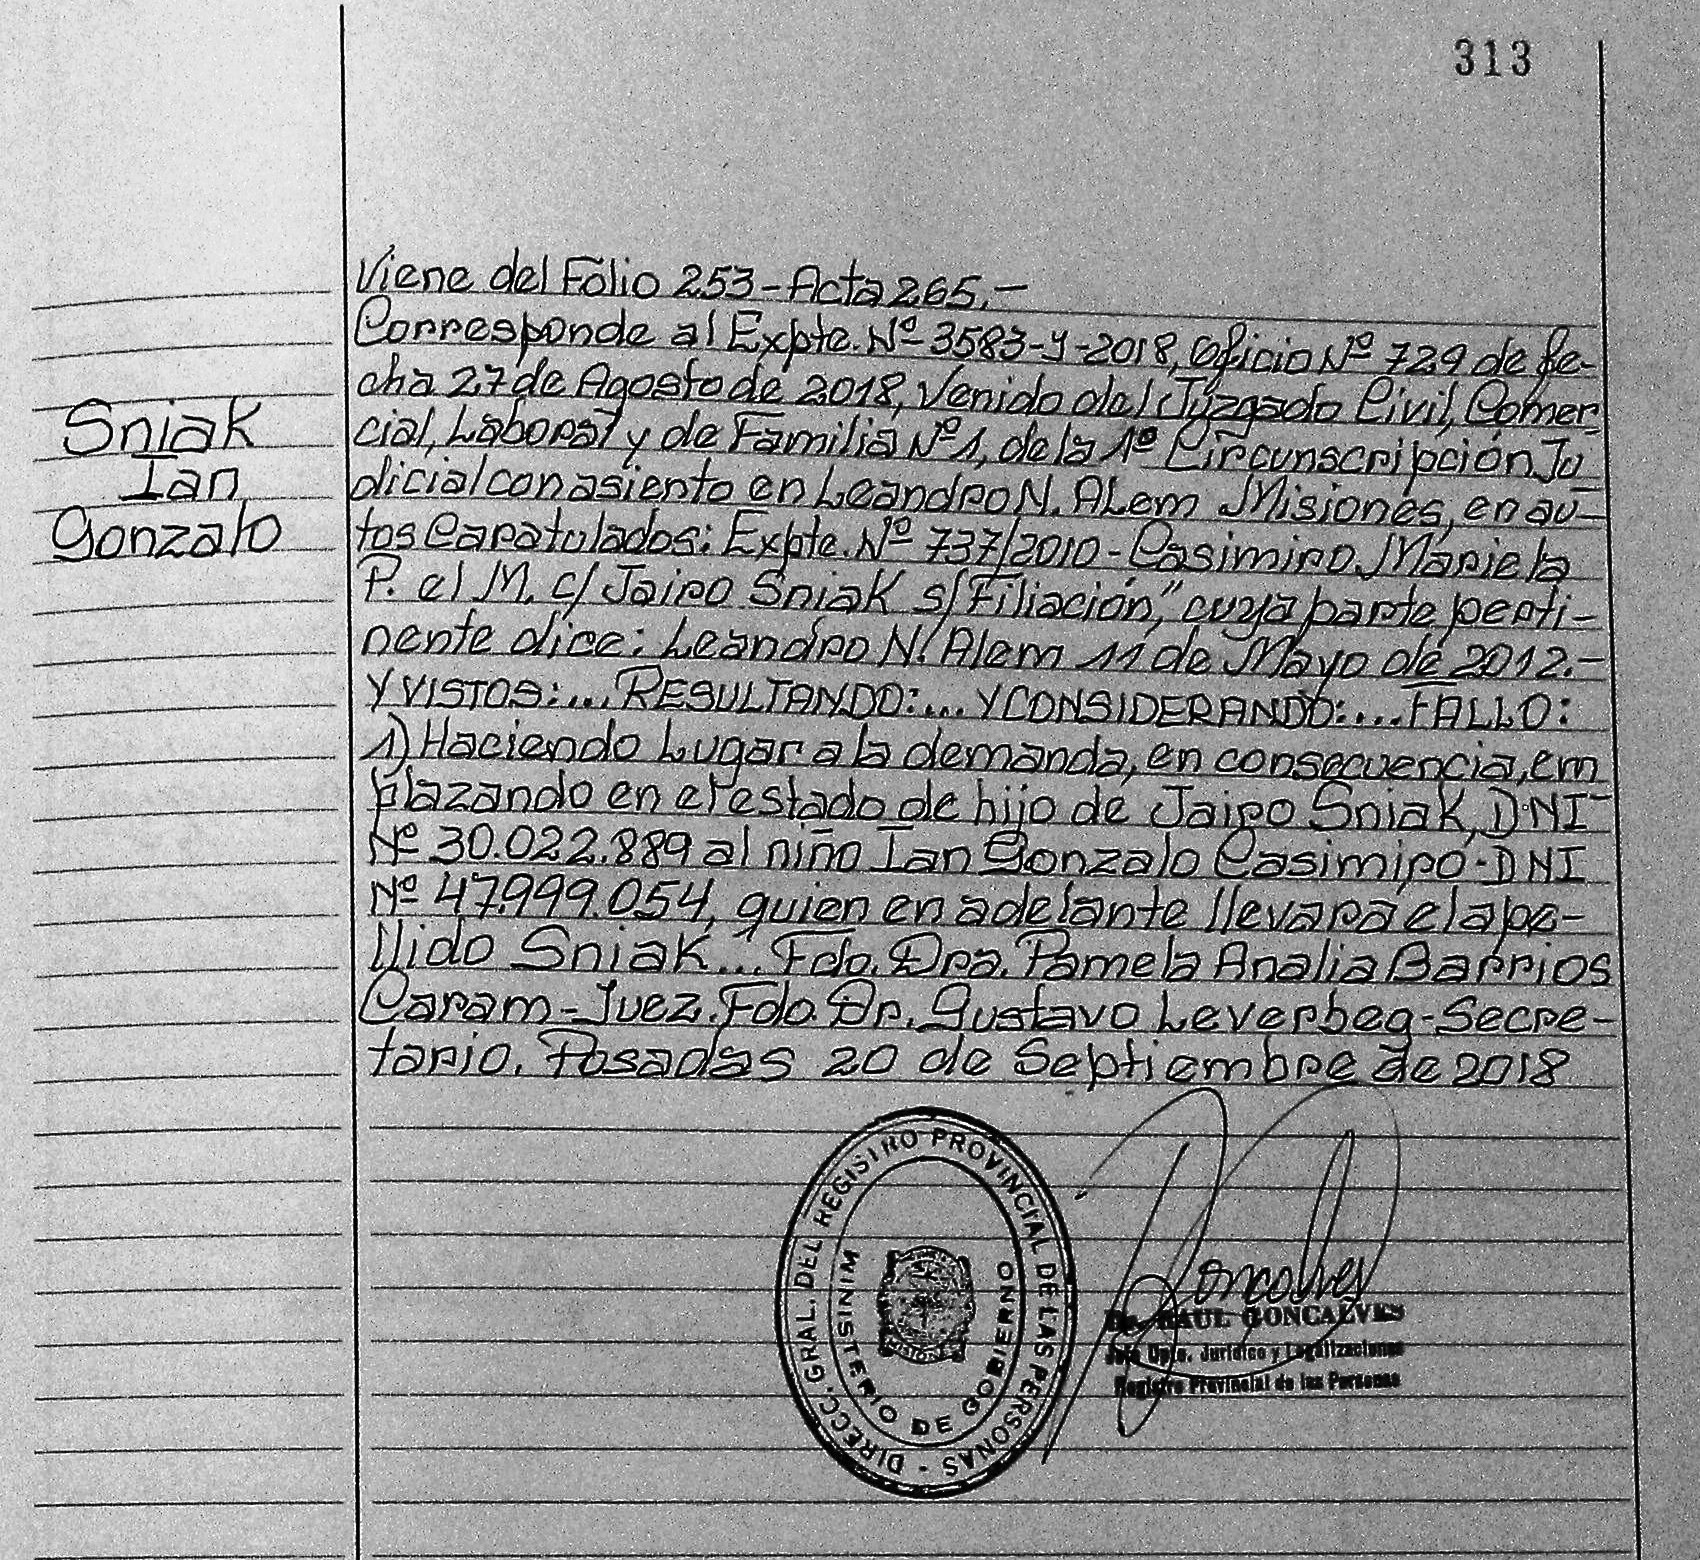 313
Viene del Folio 253-Acta 265.-
Corresponde al Expte. Nº 3583-Y-2018, Oficio Nº 729 de fe-
cha 27 de Agosto de 2018, Venido del Juzgado Civil, Comer
cial, Laboral y de Familia Nº 1, de la 1º Circunscripción Ju
dicial con asiento en Leandro N. Alem Misiones, en au-
tos Caratulados: Expte. Nº 737/2010-Casimiro Mariela
P. el M. c/ Jairo Sniak s/Filiación," cuya parte perti-
nente dice: Leandro N. Alem 11 de Mayo de 2012.-
Y VISTOS:... RESULTANDO:... Y CONSIDERANDO:... FALLO:
1) Haciendo Lugar a la demanda, en consecuencia, em
plazando en el estado de hijo de Jairo Sniak, DNI
Nº 30.022.889 al niño Ian Gonzalo Casimiro-DNI
Nº 47.999.054, quien en adelante llevará el ape-
llido Sniak... Fdo. Dra. Pamela Analia Barrios
Caram-Juez. Fdo. Dr. Gustavo Leverbeg-Secre-
tario. Posadas 20 de Septiembre de 2018
Sniak
Ian
Gonzalo
DIRECC. GRAL. DEL REGISTRO PROVINCIAL DE LAS PERSONAS -
MINISTERIO DE GOBIERNO
MISIONES
Goncalves
Dr. RAUL GONCALVES
Jefe Dpto. Jurídico y Legalizaciones
Registro Provincial de las Personas